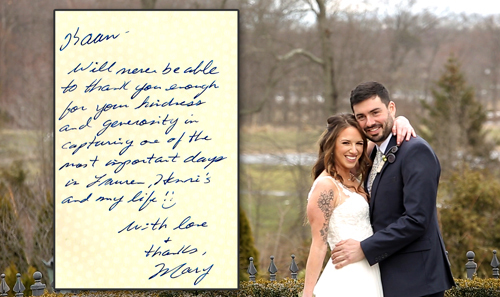 Kaan-
Will never be able
to thank you enough
for your kindness
and generosity in
capturing one of the
most important days
in Lauren, Henri's
and my life
With love
+
thanks,
Mary